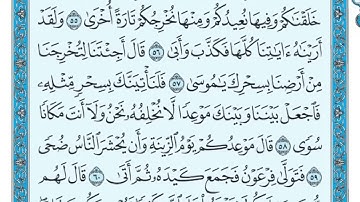 خَلَقْنَٰكُمْ وَفِيهَا نُعِيدُكُمْ وَمِنْهَا نُخْرِجُكُمْ تَارَةً أُخْرَىٰ ٥٥ وَلَقَدْ
أَرَيْنَٰهُ ءَايَٰتِنَا كُلَّهَا فَكَذَّبَ وَأَبَىٰ ٥٦ قَالَ أَجِئْتَنَا لِتُخْرِجَنَا
مِنْ أَرْضِنَا بِسِحْرِكَ يَٰمُوسَىٰ ٥٧ فَلَنَأْتِيَنَّكَ بِسِحْرٍ مِّثْلِهِۦ
فَٱجْعَلْ بَيْنَنَا وَبَيْنَكَ مَوْعِدًا لَّا نُخْلِفُهُۥ نَحْنُ وَلَآ أَنتَ مَكَانًا
سُوًى ٥٨ قَالَ مَوْعِدُكُمْ يَوْمُ ٱلزِّينَةِ وَأَن يُحْشَرَ ٱلنَّاسُ ضُحًى
٥٩ فَتَوَلَّىٰ فِرْعَوْنُ فَجَمَعَ كَيْدَهُۥ ثُمَّ أَتَىٰ ٦٠ قَالَ لَهُم